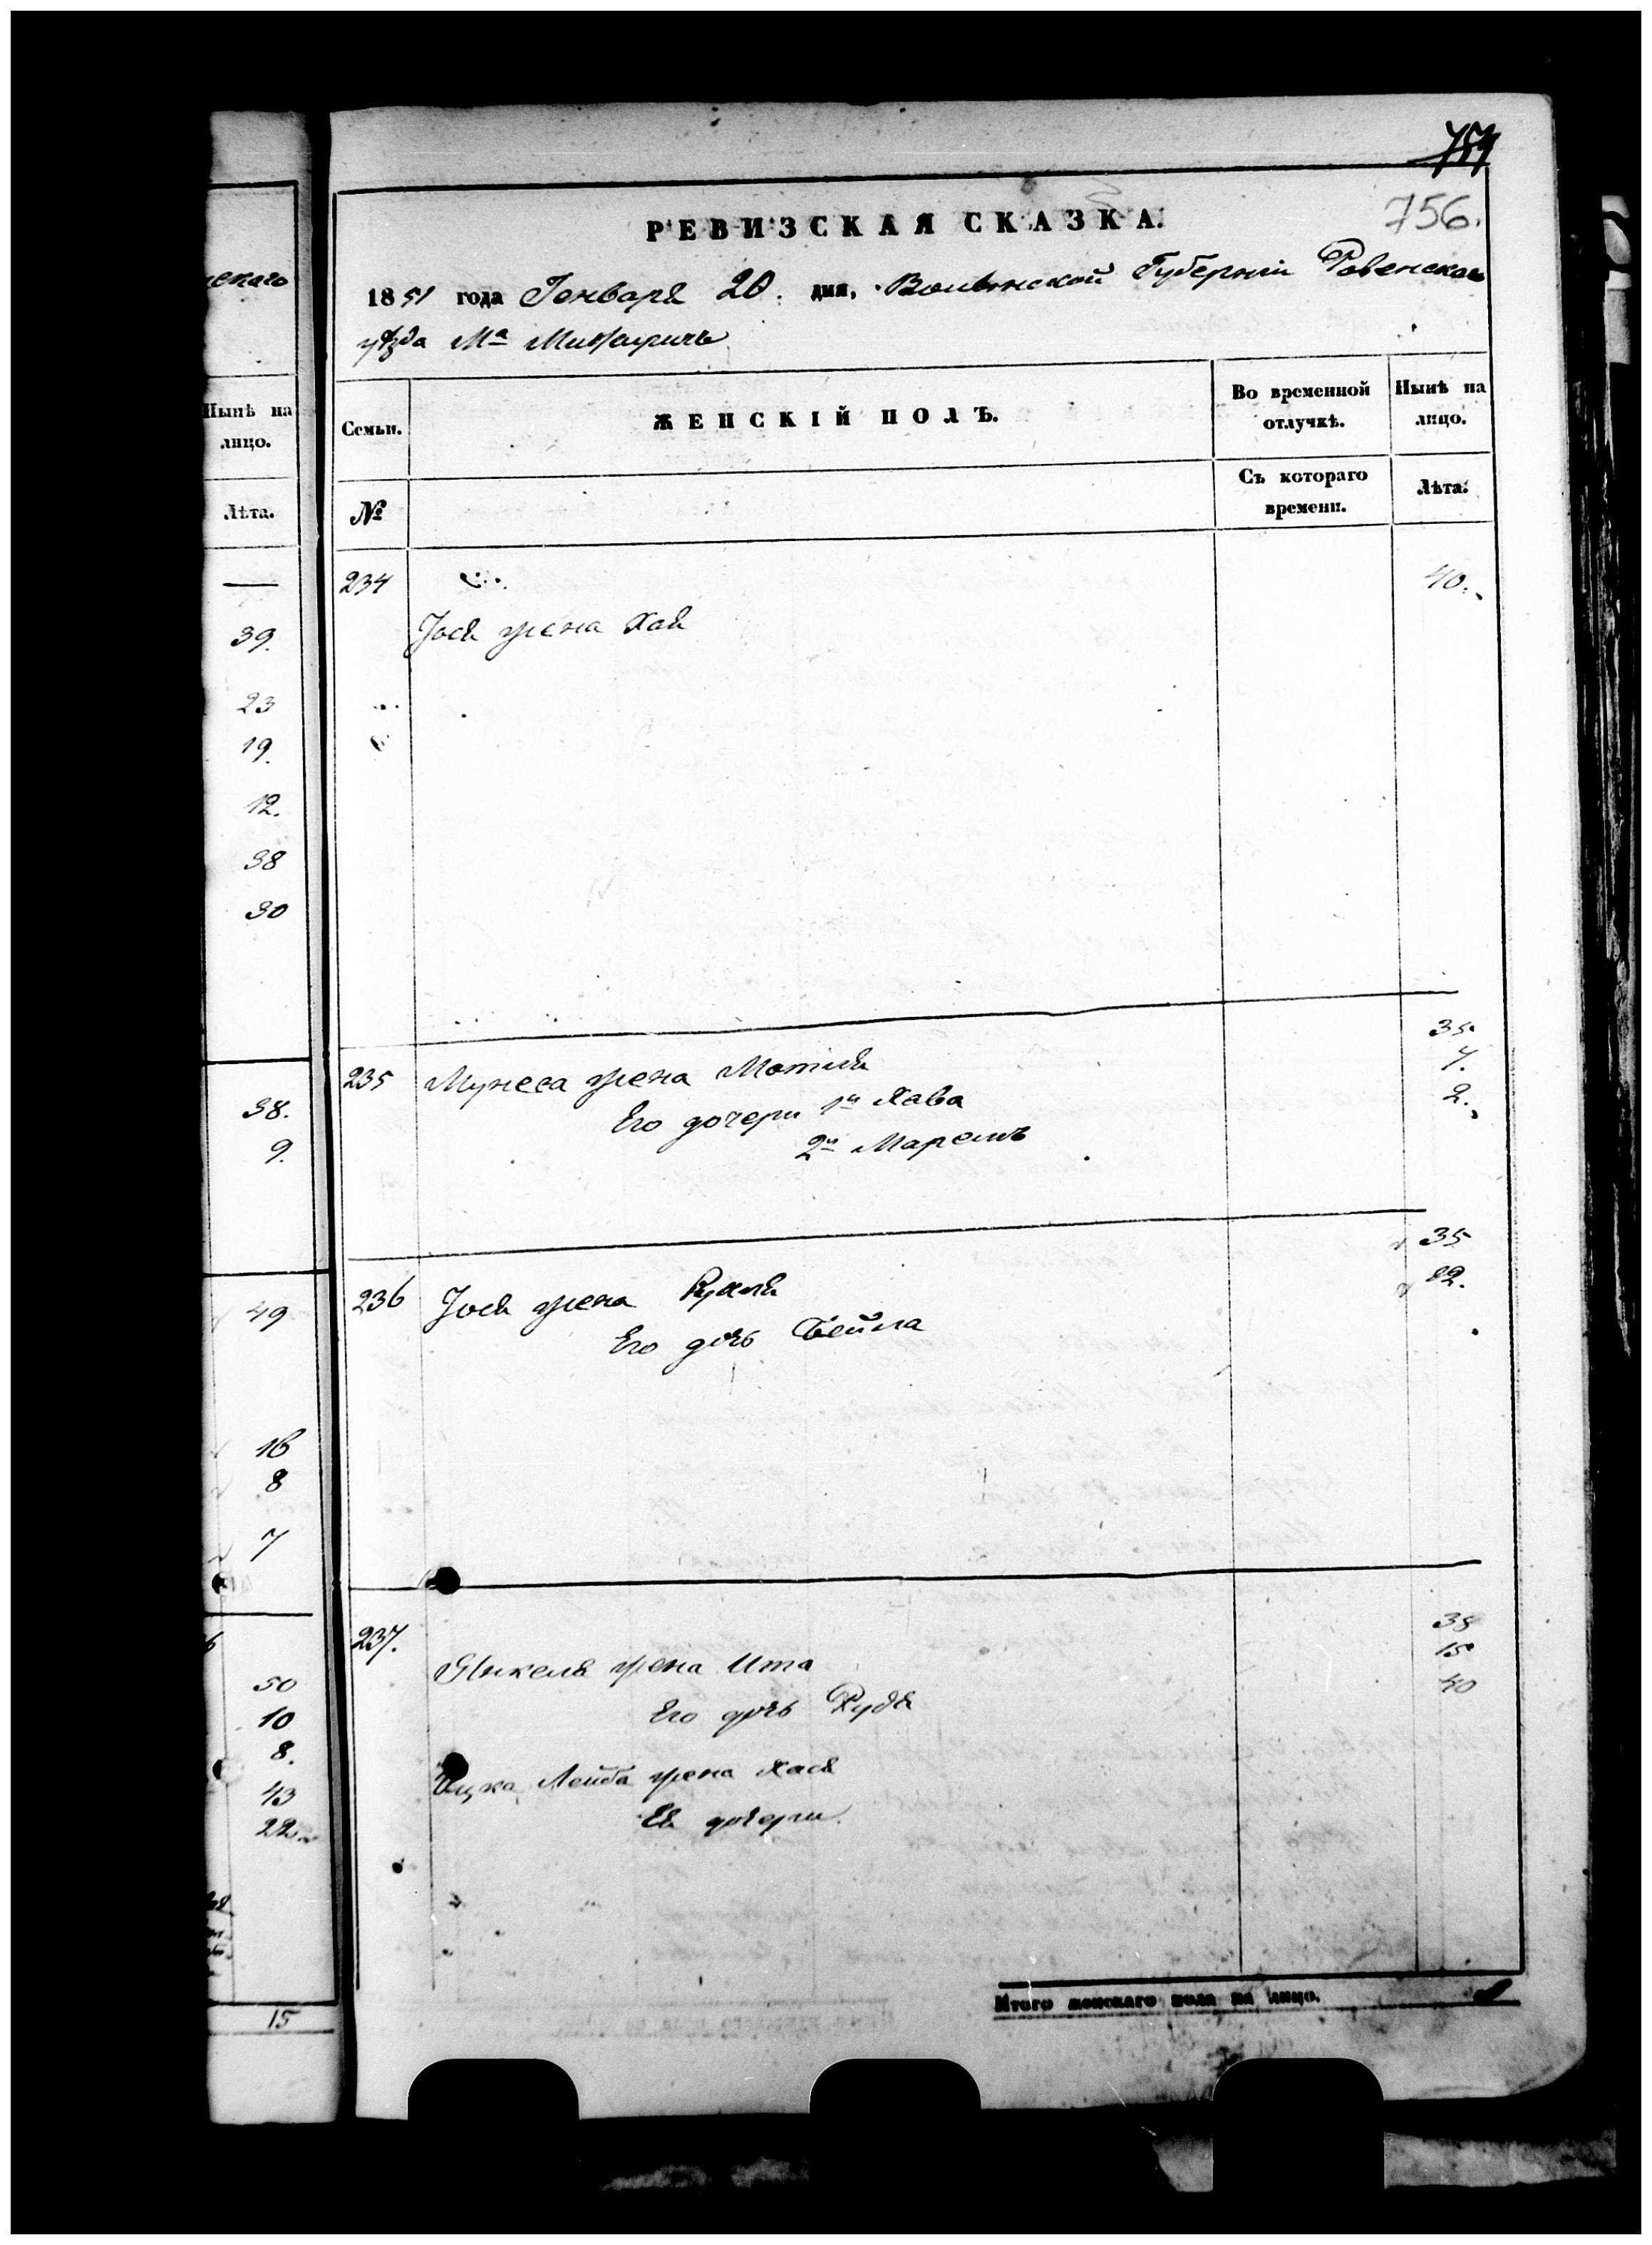 754
756.
РЕВИЗСКАЯ СКАЗКА.
1851 года Генваря 20. дня, Волынской Губерніи Ровенского
уѣзда Мᵃ
скаго
Нынѣ на
лицо.
Лѣта.
—
39.
23
19.
12.
38
30
38.
9.
49
16
8
7
50
10
8.
43
22
15
Семьи.
ЖЕНСКІЙ ПОЛЪ.
Во временной
отлучкѣ.
Нынѣ на
лицо.
№
Съ котораго
времени.
Лѣта.
234
40.
Іося жена Хая
235 Мунеса жена Мотля 35.
Его дочери 1я Хава 7.
2я Маремъ 2.
236 Іося жена Рухля 35
Его дочь Бейла 12.
237.
Янкеля жена Ита 35
Его дочь Рудя 15
Ицка Лейба жена Хася 40
Ея дочери
Итого женскаго пола на лицо.